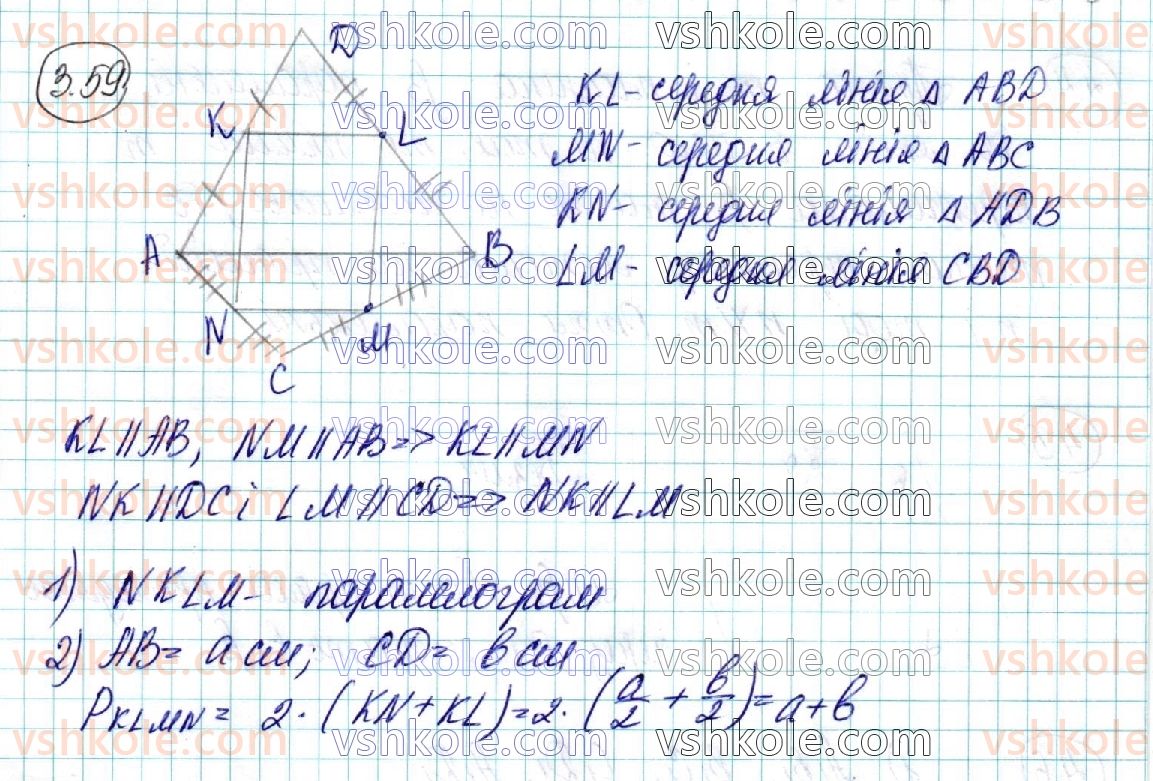 3.59
D
K
L
A
B
N
M
C
KL - середня лінія △ ABD
MN - середня лінія △ ABC
KN - середня лінія △ ADB
LM - середня лінія CBD
KL || AB, NM || AB => KL || MN
NK || DC і LM || CD => NK || LM
1) NKLM - паралелограм
2) AB = a см; CD = b см
P_KLMN = 2 · (KN + KL) = 2 · (a/2 + b/2) = a + b
vshkole.com